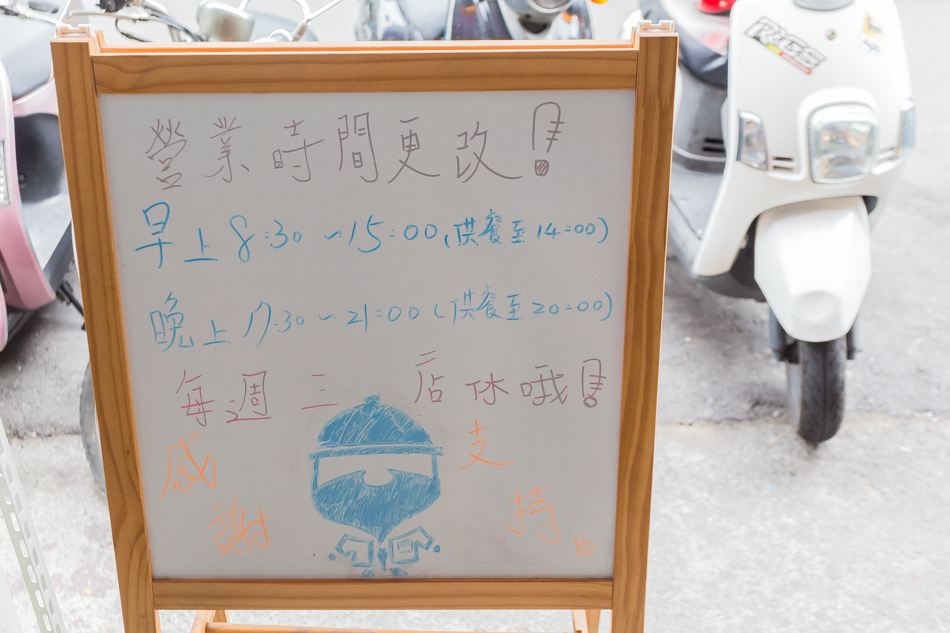 營業時間更改!
早上 8:30 ~ 15:00 (供餐至 14:00)
晚上 17:30 ~ 21:00 (供餐至 20:00)
每週三 店休哦!
感謝 支持。
RIGS